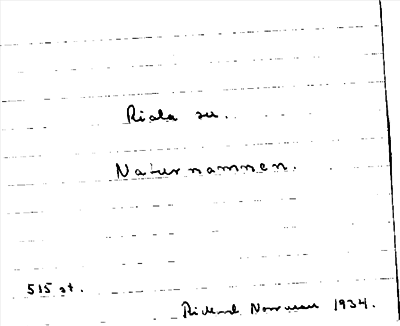 Riala sn.
Naturnamnen.
515 st.
Rickard Norrman 1934.